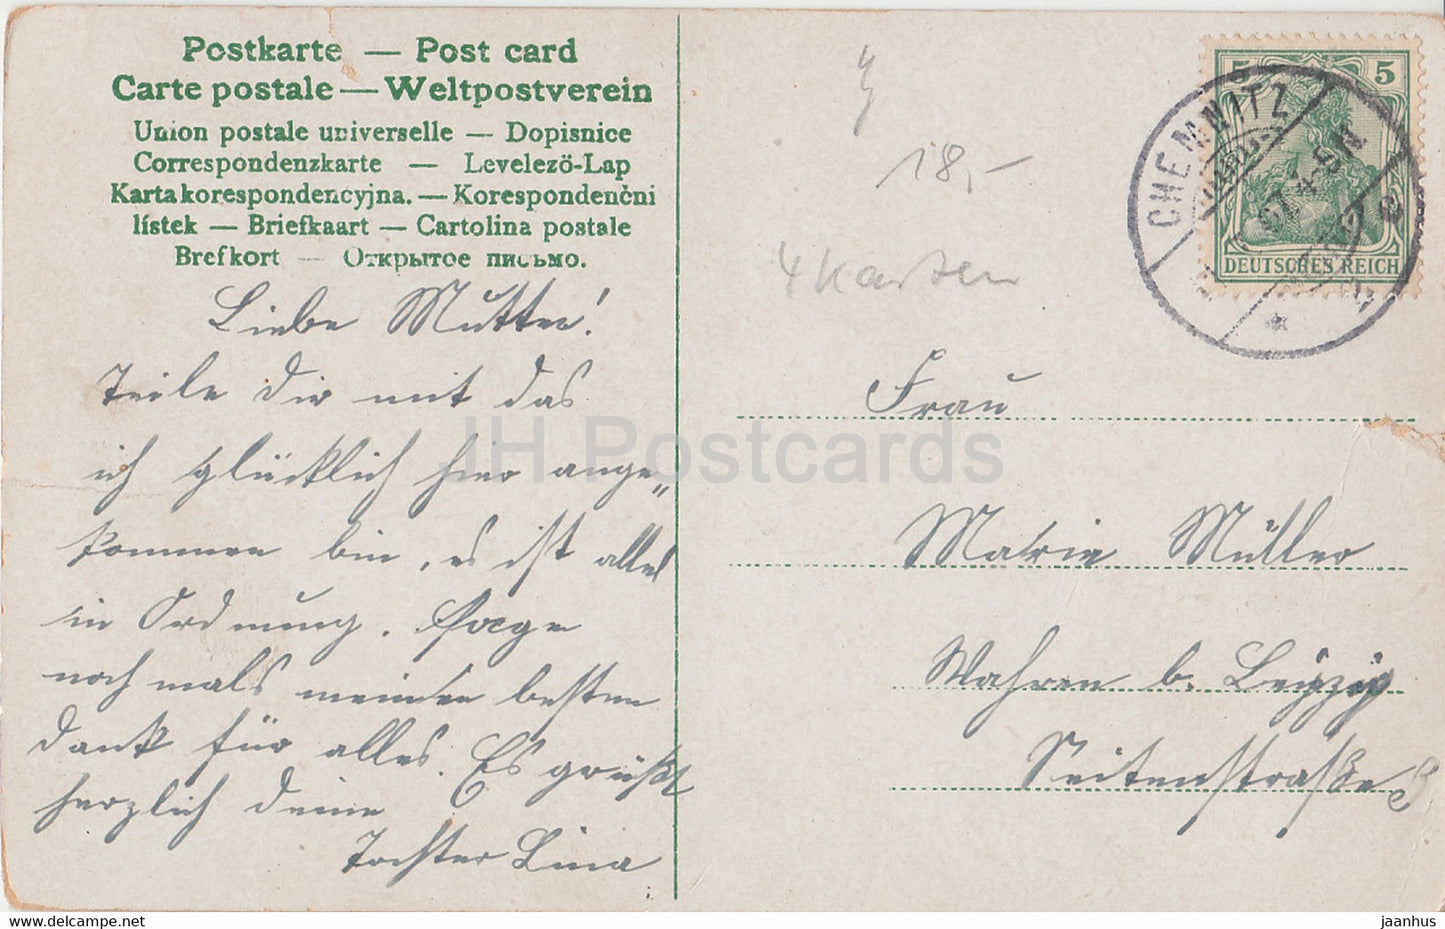 Postkarte — Post card
Carte postale — Weltpostverein
Union postale universelle — Dopisnice
Correspondenzkarte — Levelező-Lap
Karta korespondencyjna. — Korespondenční
lístek — Briefkaart — Cartolina postale
Brefkort — Открытое письмо.
Liebe Mutter!
Teile Dir mit das
ich glücklich hier ange„
kommen bin, es ist alles
in Ordnung. Sage
noch mals meinen besten
Dank für alles. Es grüßt
herzlich deine
Tochter Lina
18,-
4 Karten
5 5
DEUTSCHES REICH
CHEMNITZ
Frau
Marie Müller
Wahren b. Leipzig
Seitenstraße 3
JH Postcards
www.delcampe.net
jaanhus